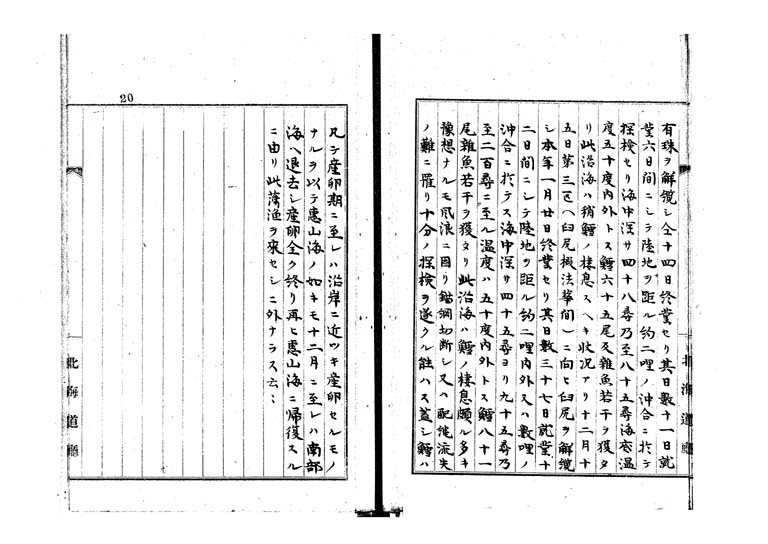 有珠ヲ解纜シ仝十四日終業セリ其日数十一日就
業六日間ニシテ陸地ヲ距ル約二哩ノ沖合ニ於テ
探検セリ海中深サ四十八尋乃至八十五尋海底温
度五十度内外トス鱈六十五尾及雑魚若干ヲ獲タ
リ此沿海ハ稍鱈ノ棲息スヘキ状況アリ十二月十
五日第三区(臼尻椴法華間)ニ向ヒ臼尻ヲ解纜
シ本年一月廿日終業セリ其日数三十七日就業十
二日間ニシテ陸地ヲ距ル約二哩内外又ハ数哩ノ
沖合ニ於テス海中深サ四十五尋ヨリ九十五尋乃
至二百尋ニ至ル温度ハ五十度内外トス鱈八十一
尾雑魚若干ヲ獲タリ此沿海ハ鱈ノ棲息頗ル多キ
豫想ナルモ風浪ニ困リ錨綱切断シ又ハ配縄流失
ノ難ニ罹リ十分ノ探検ヲ遂クル能ハス蓋シ鱈ハ
北海道廳
20
凡テ産卵期ニ至レハ沿岸ニ近ツキ産卵セルモノ
ナルヲ以テ恵山海ノ如キモ十二月ニ至レハ南部
海ヘ退去シ産卵全ク終リ再ヒ恵山海ニ帰復スル
ニ由リ此薄漁ヲ来セシニ外ナラス云々
北海道廳